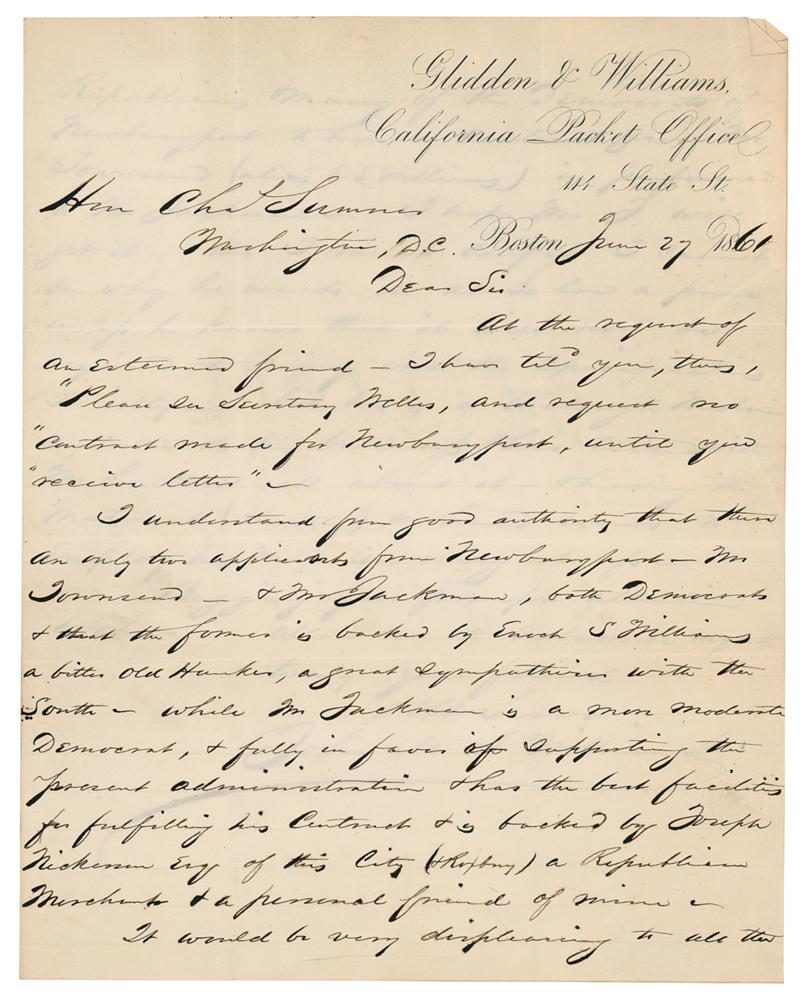 Glidden & Williams,
California Packet Office
114 State St.
Hon Chas Sumner
Washington, D.C. Boston June 27 1861
Dear Sir
At the request of
an esteemed friend – I have teld you, thus,
"Please see Secretary Welles, and request no
"contract made for Newburyport, until you
"receive letter" –
I understand from good authority that there
are only two applicants from Newburyport – Mr
Townsend – & Mr Jackman, both Democrats
& that the former is backed by Enoch S Williams
a bitter old Hunker, a great sympathiser with the
South – while Mr Jackman is a more moderate
Democrat, & fully in favor of supporting the
present administration & has the best facilities
for fulfilling his Contract & is backed by Joseph
Nickerson Esq of this City (& Roxbury) a Republican
Merchant & a personal friend of mine –
It would be very displeasing to all the